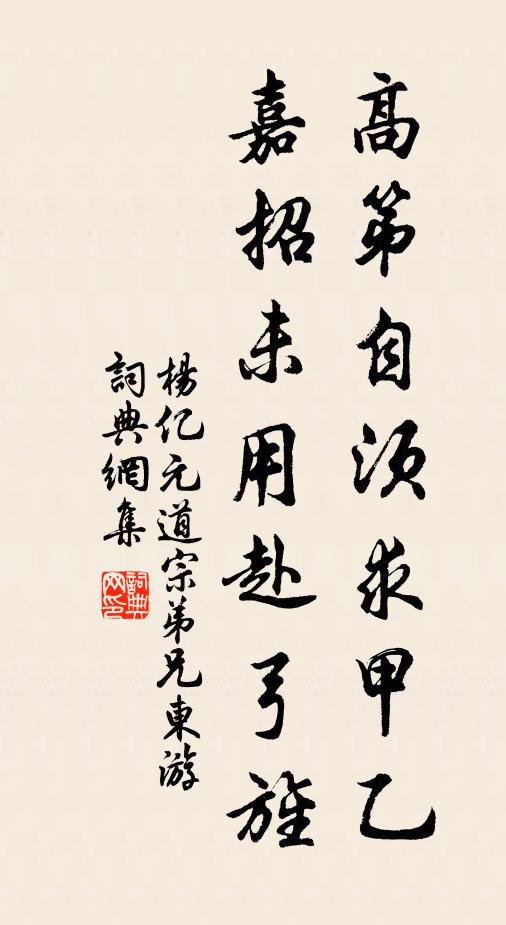 高第自須求甲乙
嘉招未用赴弓旌
楊亿元道宗弟兄東游
詞典網集
詞典網印